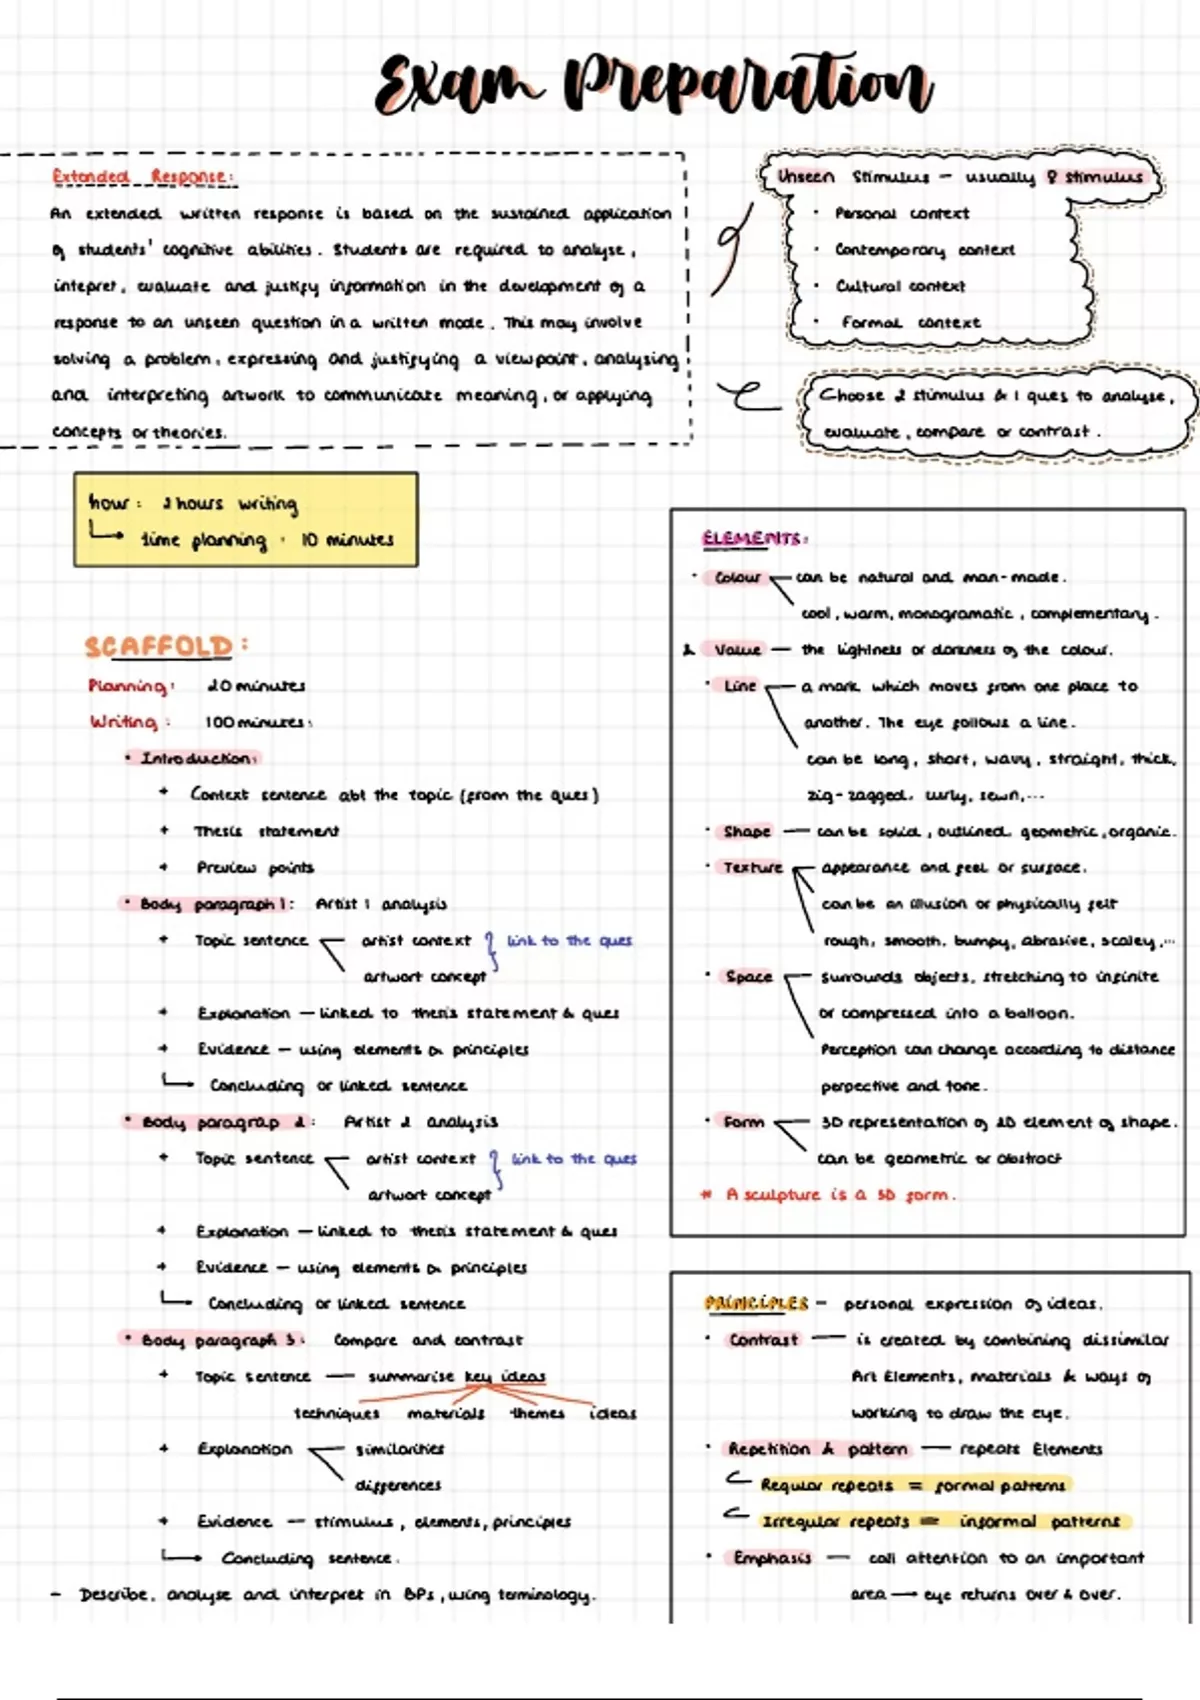 Exam Preparation
Extended Response:
An extended written response is based on the sustained application
of students' cognitive abilities. Students are required to analyse,
intepret, evaluate and justify information in the development of a
response to an unseen question in a written mode. This may involve
solving a problem, expressing and justifying a viewpoint, analysing
and interpreting artwork to communicate meaning, or applying
concepts or theories.
Unseen Stimulus - usually 8 stimulus
· Personal context
· Contemporary context
· Cultural context
· Formal context
Choose 2 stimulus & 1 ques to analyse,
evaluate, compare or contrast.
hour: 2 hours writing
time planning: 10 minutes
SCAFFOLD:
Planning: 20 minutes
Writing: 100 minutes:
· Introduction:
+ Context sentence abt the topic (from the ques)
+ Thesis statement
+ Preview points
· Body paragraph 1: Artist 1 analysis
+ Topic sentence artist context link to the ques
artwort concept
+ Explanation - linked to thesis statement & ques
+ Evidence - using elements & principles
Concluding or linked sentence
· Body paragrap 2: Artist 2 analysis
+ Topic sentence artist context link to the ques
artwort concept
+ Explanation - linked to thesis statement & ques
+ Evidence - using elements & principles
Concluding or linked sentence
· Body paragraph 3: Compare and contrast
+ Topic sentence - summarise key ideas
techniques materials themes ideas
+ Explanation similarities
differences
+ Evidence - stimulus, elements, principles
Concluding sentence.
- Describe, analyse and interpret in BPs, using terminology.
ELEMENTS:
· Colour - can be natural and man-made.
cool, warm, monogramatic, complementary.
& Value - the lightness or darkness of the colour.
· Line - a mark which moves from one place to
another. The eye follows a line.
can be long, short, wavy, straight, thick,
zig-zagged, curly, sewn,...
· Shape - can be solid, outlined, geometric, organic.
· Texture appearance and feel or surface.
can be an illusion or physically felt
rough, smooth, bumpy, abrasive, scaley,...
· Space - surrounds objects, stretching to infinite
or compressed into a balloon.
Perception can change according to distance
perpective and tone.
· Form - 3D representation of 2D element of shape.
can be geometric or abstract
* A sculpture is a 3D form.
PRINCIPLES - personal expression of ideas.
· Contrast - is created by combining dissimilar
Art Elements, materials & ways of
working to draw the eye.
· Repetition & pattern - repeats Elements
Regular repeats = formal patterns
Irregular repeats = informal patterns
· Emphasis - call attention to an important
area → eye returns over & over.